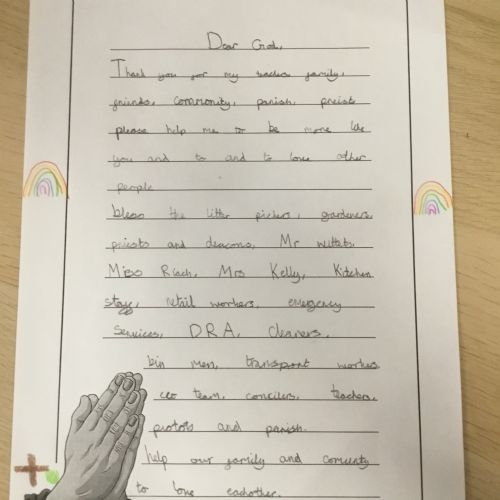 Dear God,
Thank you for my teacher family,
friends, Community, parish, preists
please help me to be more like
you and to and to love other
people
bless the litter pickers, gardeners,
priests and deacons, Mr
Miss Riach, Mrs Kelly, Kitchen
staff, retail workers, emergency
Services, DRA, cleaners,
bin men, transport workes
ceo team, concilers, teachers,
and parish.
help our family and comunity
to love eachother.